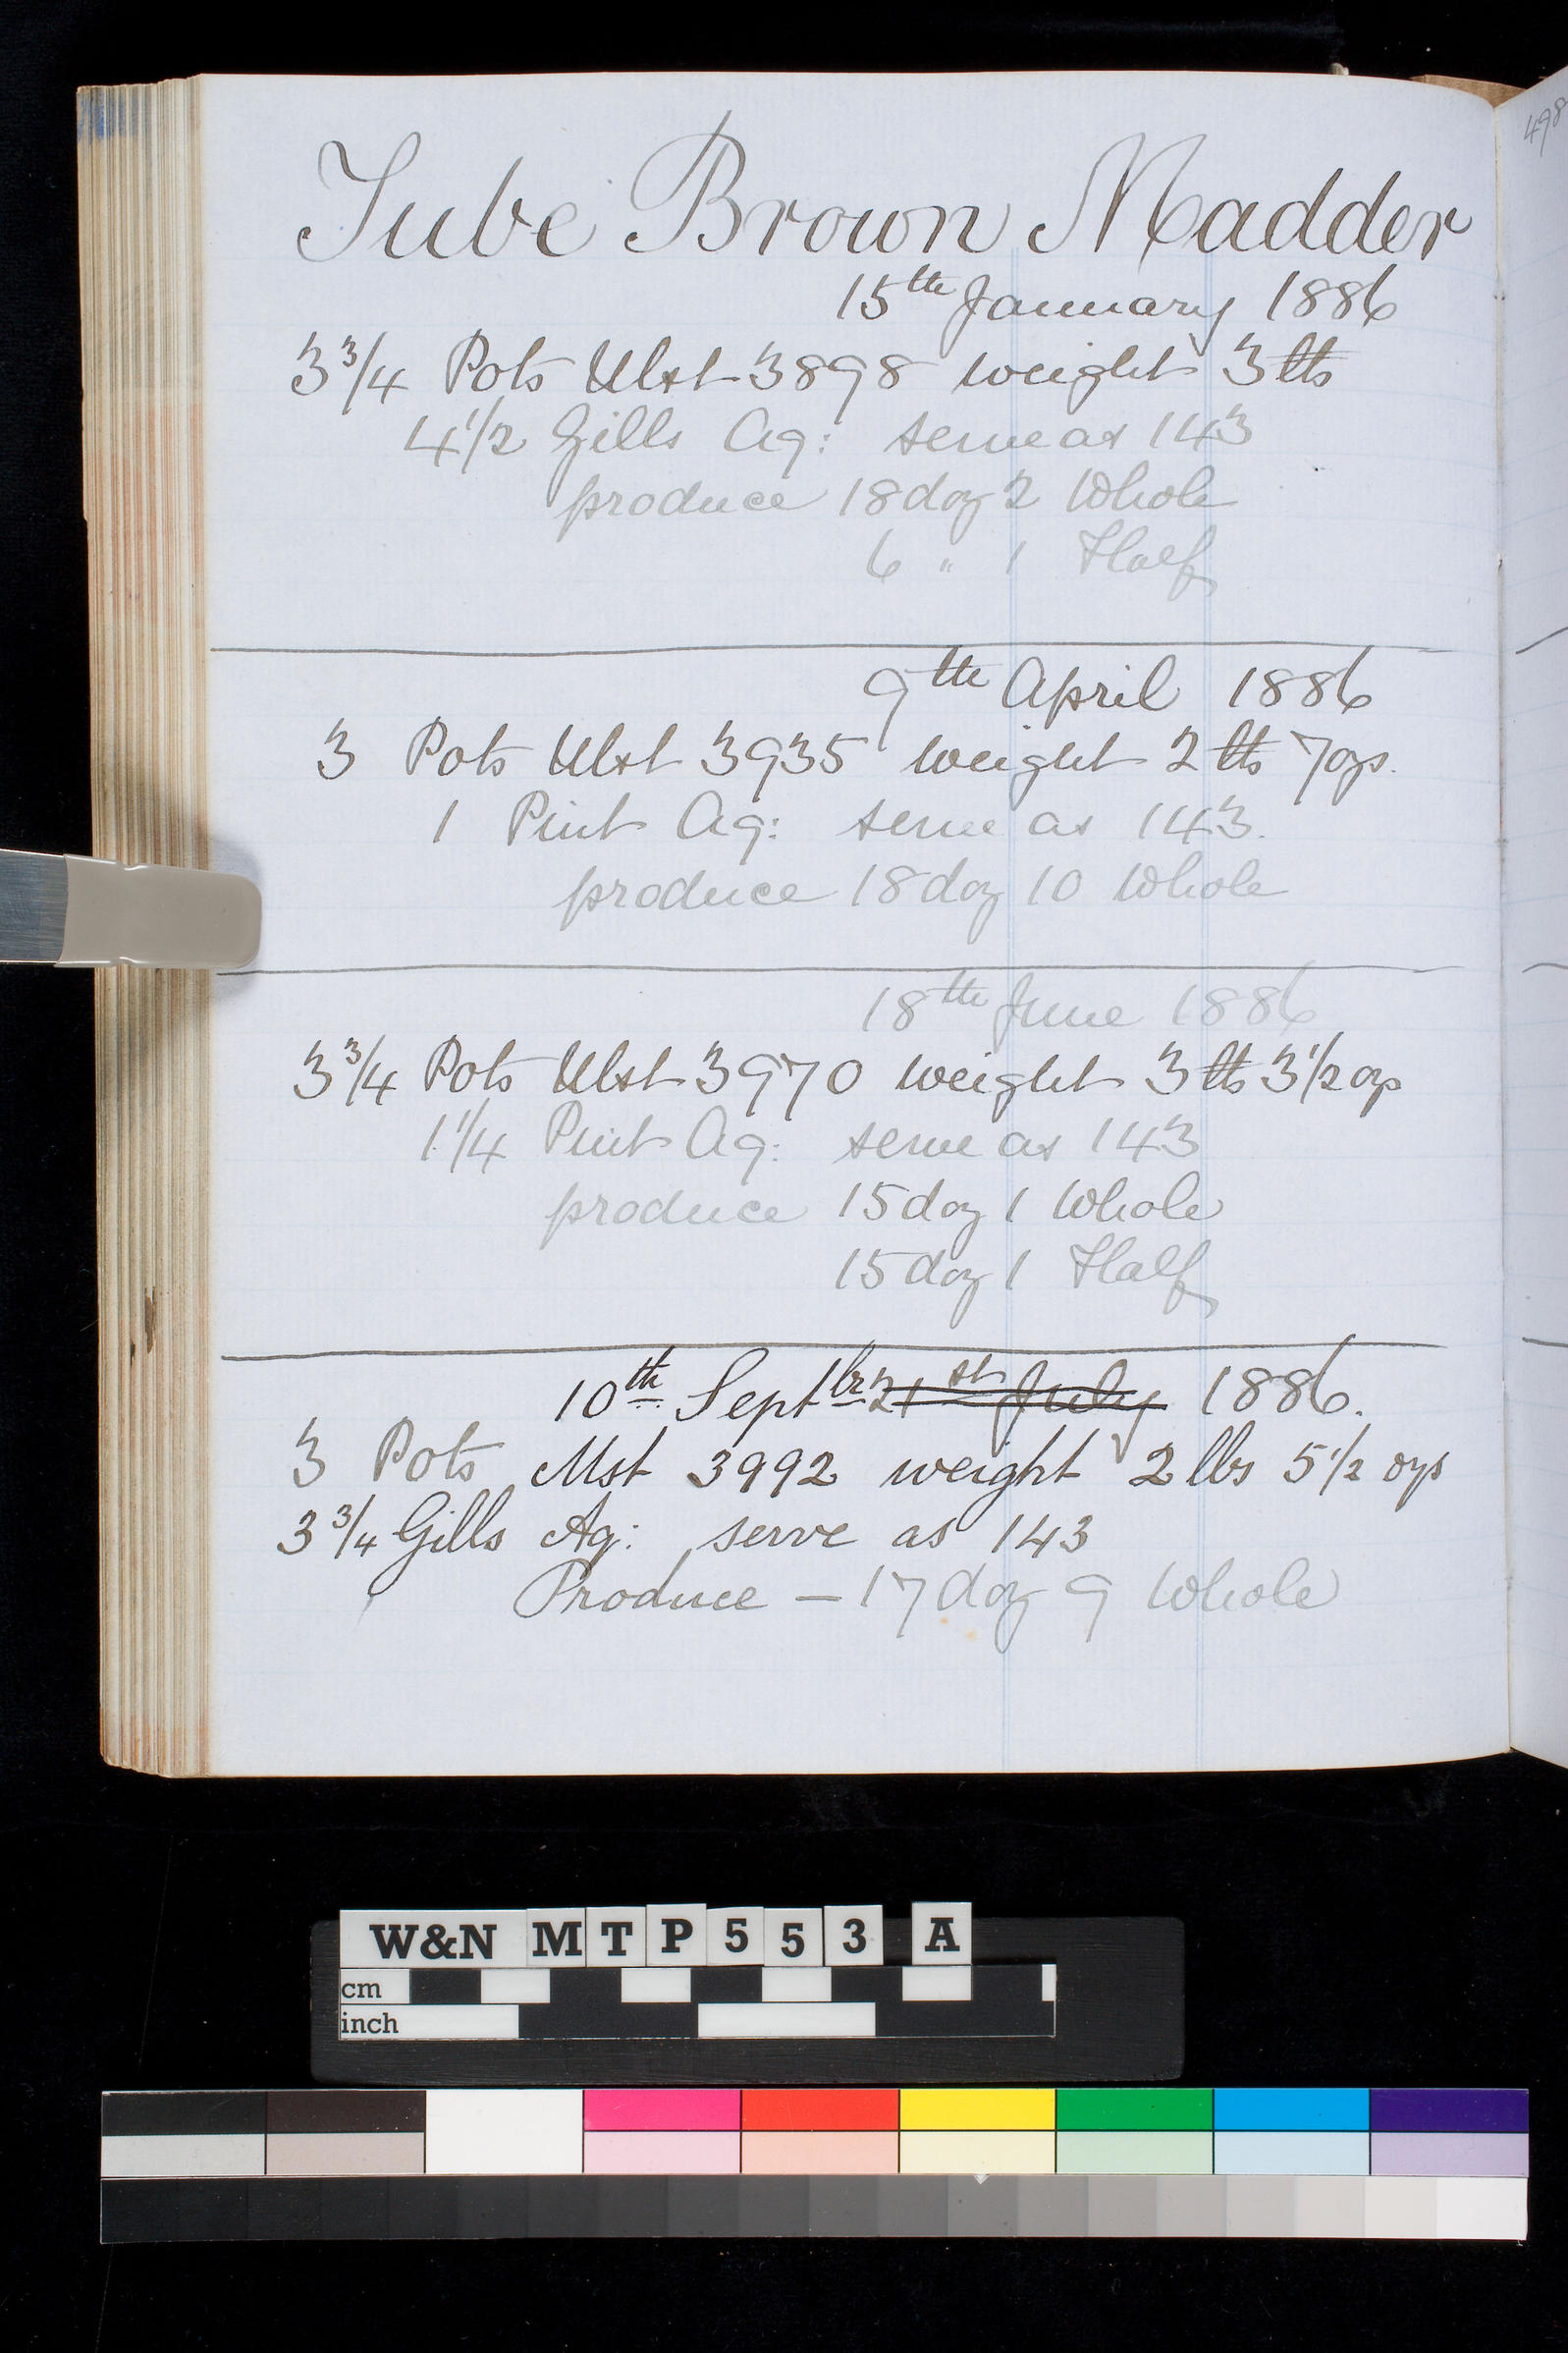 498
Tube Brown Madder
15th January 1886
3 3/4 Pots Ulst 3898 weight 3 lbs
4 1/2 Gills Aq: serve as 143
produce 18 doz 2 Whole
6 " 1 Half
9th April 1886
3 Pots Ulst 3935 weight 2 lbs 7 ozs.
1 Pint Aq: serve as 143.
produce 18 doz 10 Whole
18th June 1886
3 3/4 Pots Ulst 3970 weight 3 lbs 3 1/2 ozs
1 1/4 Pint Aq: serve as 143
produce 15 doz 1 Whole
15 doz 1 Half
10th Septbr 21st July 1886.
3 Pots Mst 3992 weight 2 lbs 5 1/2 ozs
3 3/4 Gills Aq: serve as 143
Produce — 17 doz 9 Whole
W&N MTP553 A
cm
inch